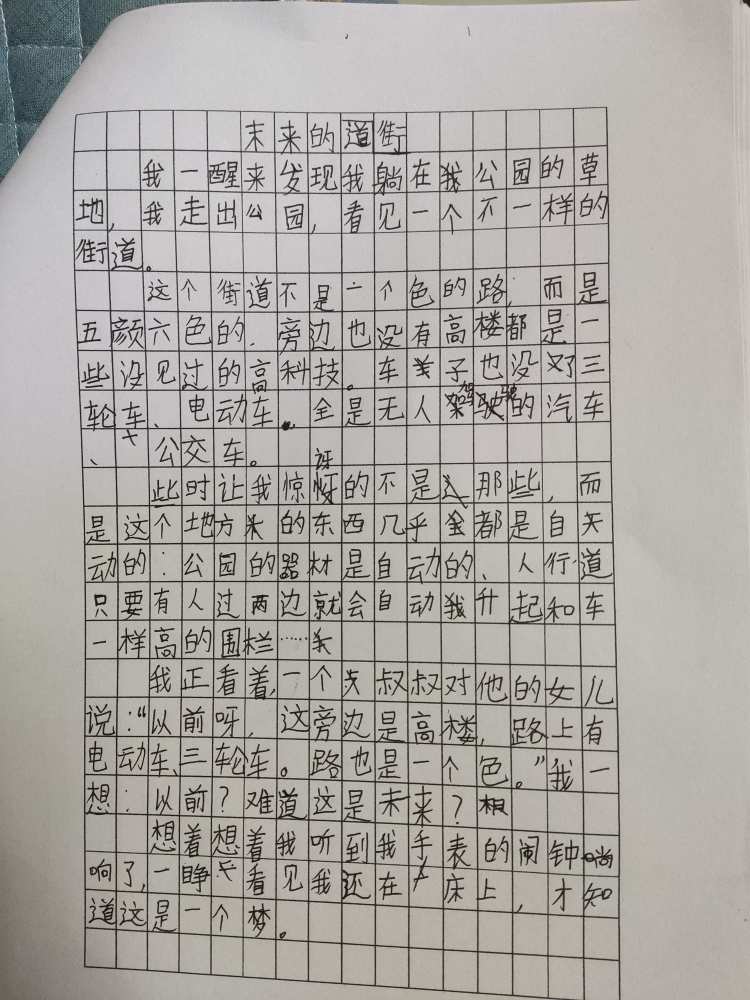 末来的道街
我一醒来发现我躺在公园的草
地，我走出公园，看见一个不一样的
街道。
这个街道不是一个色的路；而是
五颜六色的，旁边也没有高楼都是一
些没见过的高科技。车子也没了三
轮车、电动车。全是无人驾驶的汽车
、公交车。
些时让我惊讶的不是那些，而
是这个地方的东西几乎都是自
动的：公园的器材是自动的、人行道
只要有人过两边就会自动升起和车
一样高的围栏……
我正看着，一个叔叔对他的女儿
说：“以前呀，这旁边是高楼，路上有
电动车、三轮车。路也是一个色。”我一
想：以前？难道这是未来？
想着想着我听到我手表的闹钟
响了，一睁看见我还在床上，才知
道这是一个梦。